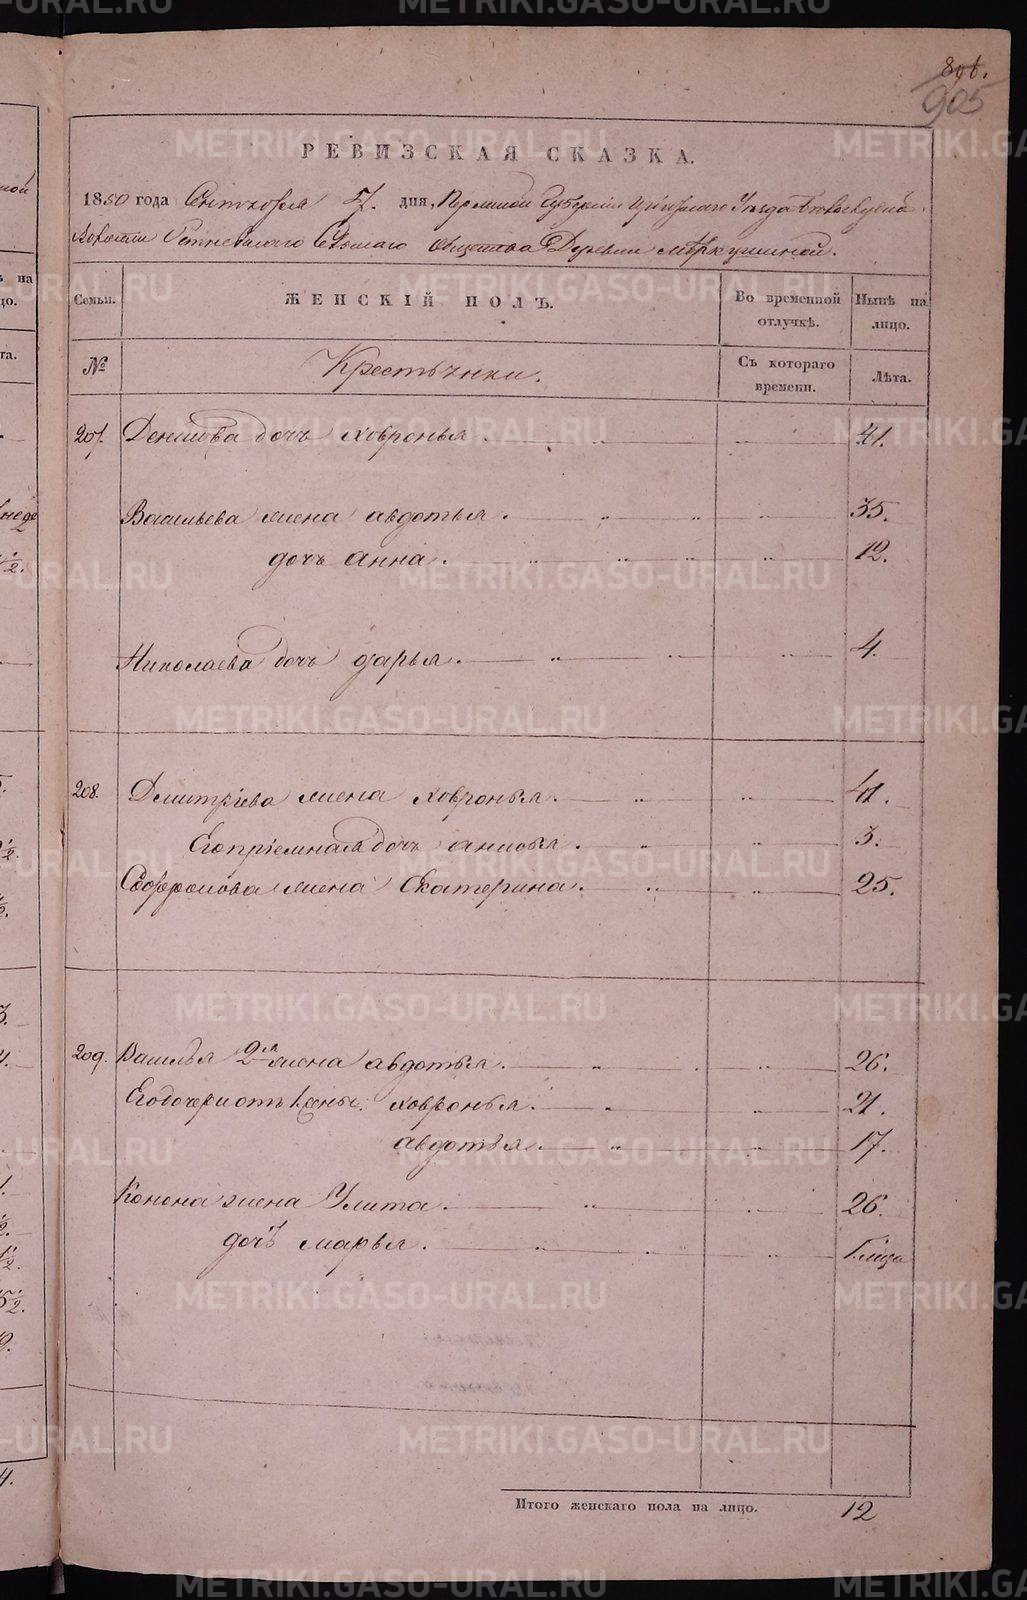 806.
905
РЕВИЗСКАЯ СКАЗКА.
1850 года Сентября 7. дня, Пермской Губернии Уезда
Волости Сельскаго общества Деревни Меркушиной.
Семьи. ЖЕНСКІЙ ПОЛЪ. Во временной отлучкѣ. Нынѣ на лицо.
№ Крестьянки. Съ котораго времени. Лѣта.
207. Денисова дочь Ховронья. 41.
Васильева жена авдотья. 35.
дочь анна. 12.
Николаева дочь дарья. 4.
208. Дмитріева жена ховронья. 41.
Его пріемная дочь анисья. 3.
Софронова жена Екатерина. 25.
209. Василья 2я жена авдотья. 26.
Его дочери от 1 жены: ховронья. 21.
авдотья. 17.
Конона жена Улита. 26.
дочь марья.
Итого женскаго пола на лицо. 12
METRIKI.GASO-URAL.RU